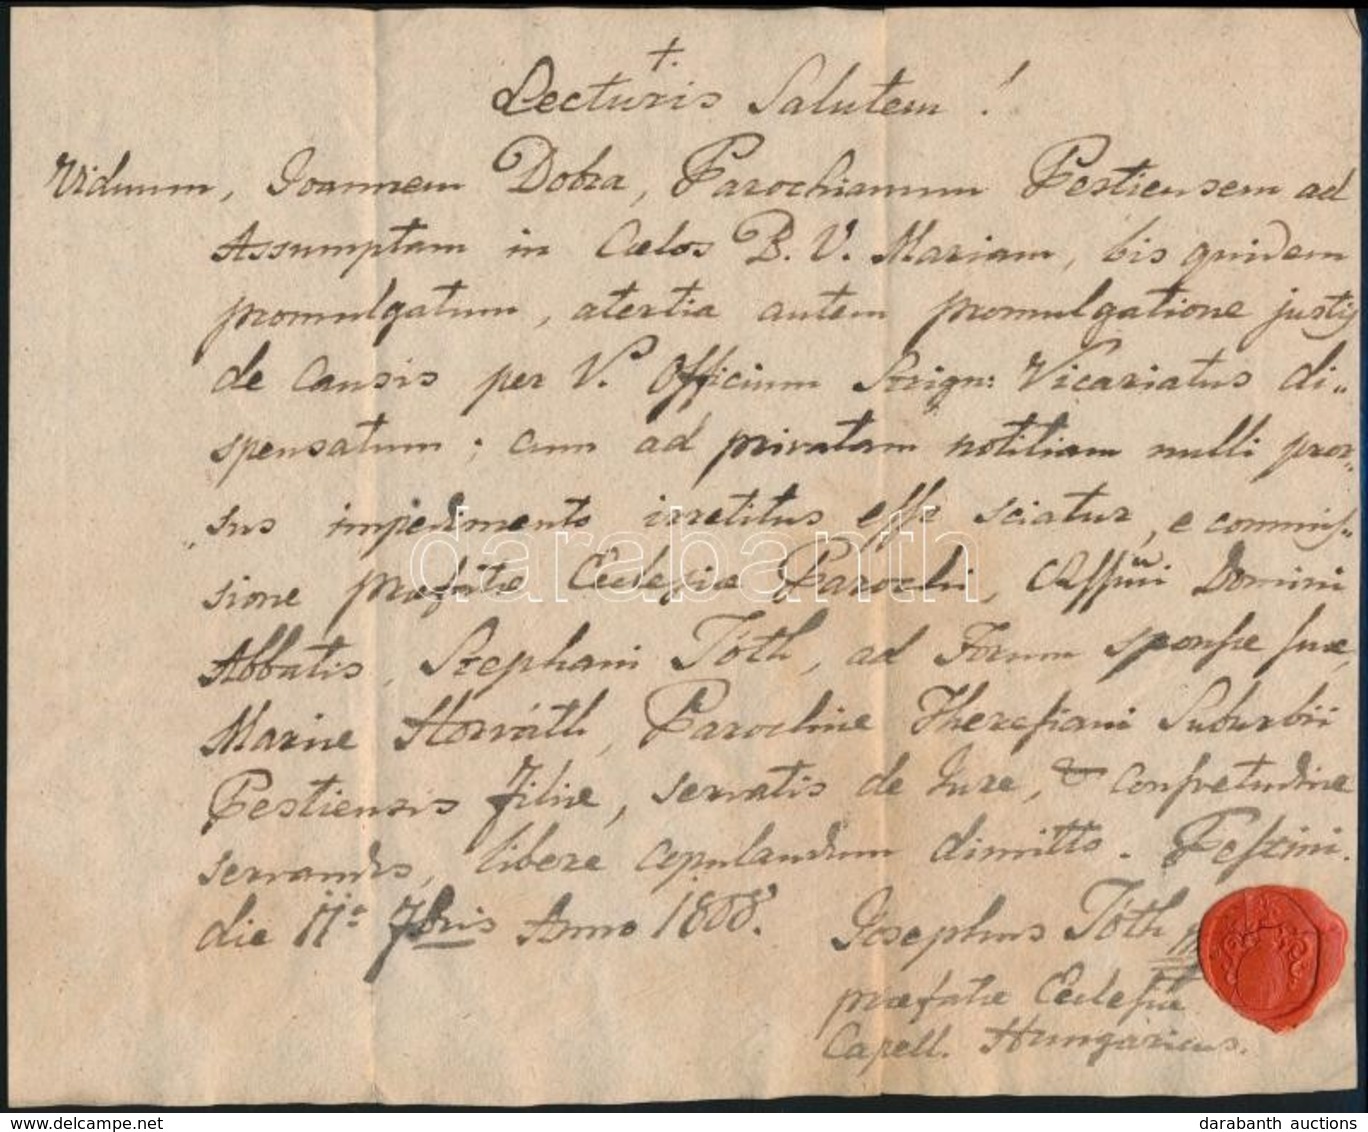 +.
Lecturis Salutem!
Viduum, Joannem Dobra, Parochianum Pestiensem ad
Assumptam in Cælos B. V. Mariam, bis quidem
promulgatum, a tertia autem promulgatione justis
de Causis per V. Officium Strign: Vicariatus di-
spensatum; cum ad privatam notitiam nulli pror-
sus impedimento irretitus esse sciatur, e commis-
sione præfatæ Ecclesiæ Parochi, Domini
Abbatis, Stephani Tóth, ad Forum sponsæ suæ,
Mariæ Horváth, Parochiæ Theresiani Suburbii
Pestiensis filiæ, servatis de Jure, & Consvetudine
servandis, libere copulandum dimitto. Pestini.
die 11a 7bris Anno 1808.
Josephus Tóth
præfatæ Ecclesiæ
Capell. Hungaricus.
darabanth
darabanth auctions
www.delcampe.net